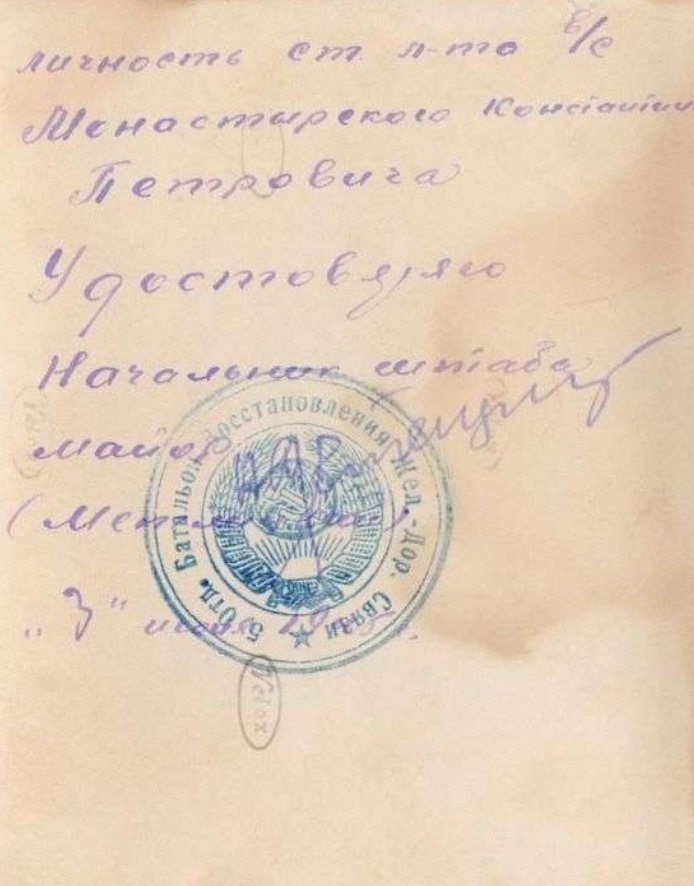 личность ст. л-та в/с
Монастырского Константин
Петровича
Удостоверяю
Начальник штаба
майор
"3" июня 19
5 Отд. Батальон Восстановления Жел.-Дор. Связи
Velox